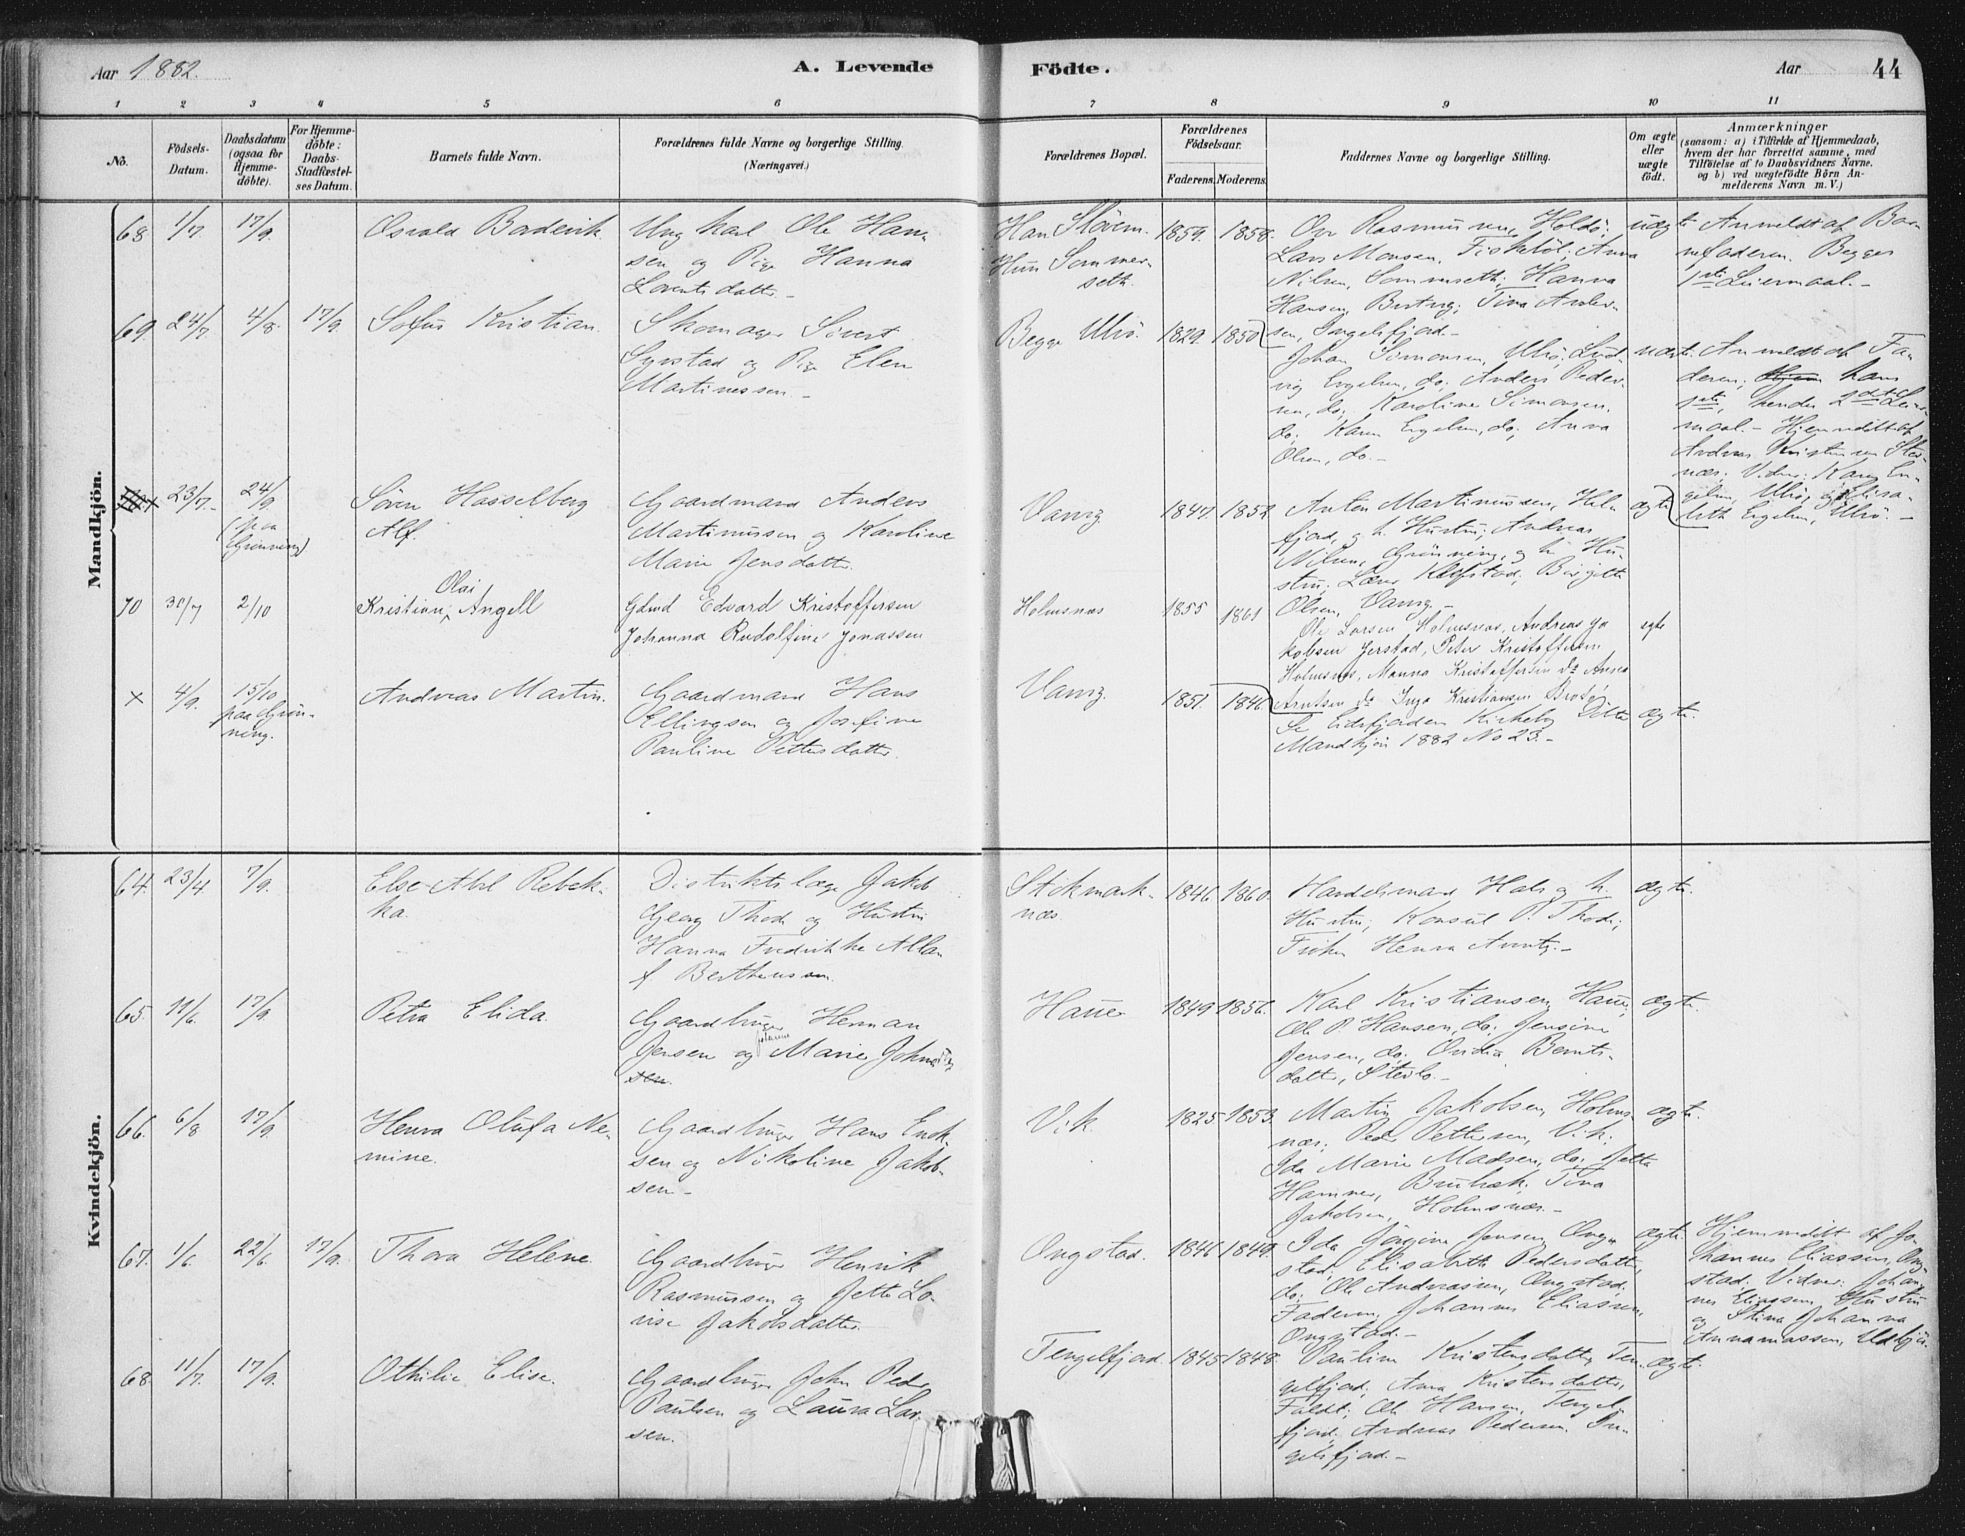 Aar 1882.
A. Levende
Födte.
Aar
44
1 2 3 4 5 6 7 8 9 10 11
No.
Födsels-
Datum.
Daabsdatum
(ogsaa for
Hjemme-
döbte).
For Hjemme-
döbte:
Daabs-
Stadfæstel-
ses Datum.
Barnets fulde Navn.
Forældrenes fulde Navne og borgerlige Stilling.
(Næringsvei.)
Forældrenes Bopæl.
Forældrenes
Födselsaar.
Faderens. Moderens.
Faddernes Navne og borgerlige Stilling.
Om ægte
eller
uægte
födt.
Anmærkninger
(saasom: a) i Tilfælde af Hjemmedaab,
hvem der har forrettet samme, med
Tilföielse af to Daabsvidners Navne,
og b) ved uægtefödte Börn An-
melderens Navn m. V.)
Mandkjön.
68 1/7 17/9.
Osvald Boderik
Ungkarl Ole Han-
sen og Pige Hanna
Lorentsdatter
Han
Hun Sommer-
seth.
1859. 1858.
Rasmussen, Holdö;
Lars Monsen, Anna
Nilsen, Sommerseth; Hanna
Hansen, Tina Ander-
sen, Ingelsfjord.-
uægte
Anmeldt af Bar-
nefaderen. Begges
1ste Leiermaal.-
69. 24/7 4/8. 17/9.
Sofus Kristian.
Skomager Sivert
og Pige Elen
Martinussen
Begge Ulvö.
1829. 1850
Johan Simonsen, Ulvö; Lud-
vig Engelsen, do; Anders Peder-
sen, do; Karoline Simonsen,
do; Karen Engelsen, do; Anna
Olsen, do.-
uægte.
Anmeldt af Fa-
deren; hans
1ste, hendes 2det Leier-
maal.- Hjemmedöbt af
Andreas Kristensen
Vidner: Karen En-
gelsen, Ulvö, og Elisa-
beth Engelsen, Ulvö.-
23/7. 24/9.
(paa
Grönning)
Sören Hasselberg
Alf.
Gaardmand Anders
Martinussen og Karoline
Marie Jensdatter.
Vareg.
1847. 1852.
Anton Martinussen,
fjord, og h. Hustru; Andreas
Nilsen, Grönning, og h. Hu-
stru; Birgitte
Olsen,
ægte
70 30/7 2/10
Kristian Olai Angell
Gdmd Edvard Kristoffersen
Johanna Rudolfine Jonassen
Holmsnæs
1855 1861
Ole Larsen Holmsnæs, Andreas Ja-
kobsen Jerstad, Peter Kristoffersen
Holmsnæs, Manna Kristoffersen do Anna
Arntsen do Inga Kristiansen
ægte
x 4/9. 15/10
paa Grön-
ning.
Andreas Martin.
Gaardmand Hans
Ellingsen og Josefine
Pauline Pettersdatter.
Vareg.
1851. 1846.
Se Eidsfjorden Kirkebog Dette
Mandkjön 1882 No 23.-
ægte.
Kvindekjön.
64. 23/4 7/9.
Else Abel Rebek-
ka.
Distriktslæge Jakob
Georg Thode og Hustru
Hanna Fredrikke Allan
f. Berthensen.
Stokmark-
næs.
1846. 1860.
Handelsmand Hals og h.
Hustru; Konsul P. Thode;
Fröken Henna
ægte.
65. 11/6. 17/9.
Petra Elida.
Gaardbruger Herman
Jensen og Johanna Marie
sen.
Hauer
1849 1856.
Karl Kristiansen, Hauer;
Ole P. Hansen, do; Jensine
Jensen, do; Ovidia Bernts-
datter,
ægte.
66. 6/8 17/9.
Henna Olufa Ne-
mine.
Gaardbruger Hans Enok-
sen og Nikoline Jakob-
sen
Vik.
1825 1853.
Martin Jakobsen, Holms-
næs; Peder Pettersen, Vik;
Ida Marie Madsen, do; Jetta
Hammer, Tina
Jakobsen, Holmsnæs.-
ægte.
67. 1/6. 22/6. 17/9.
Thora Helene.
Gaardbruger Henrik
Rasmussen og Jette Lo-
vise Jakobsdatter.
Ongstad.
1846 1849.
Ida Jörgine Jensen, Ong-
stad; Elisabeth Pedersdatter,
do; Ole Andreasen, Ongstad;
Faderen, Johannes Eliassen,
Ongstad.-
ægte.
Hjemmedöbt af Jo-
hannes Eliassen, Ong-
stad. Vidner: Johan-
nes Eliassens Hustru
og Stina Johanna
68. 11/7. 17/9.
Othilie Elise.
Gaardbruger John Peder
Paulsen og Laura Lar-
sen.
Tengelfjord.
1845 1848.
Pauline Kristensdatter, Ten-
gelfjord; Anna Kristensdatter,
Ole Hansen, Tengel-
fjord; Andreas Pedersen, In-
gelsfjord.-
ægte.